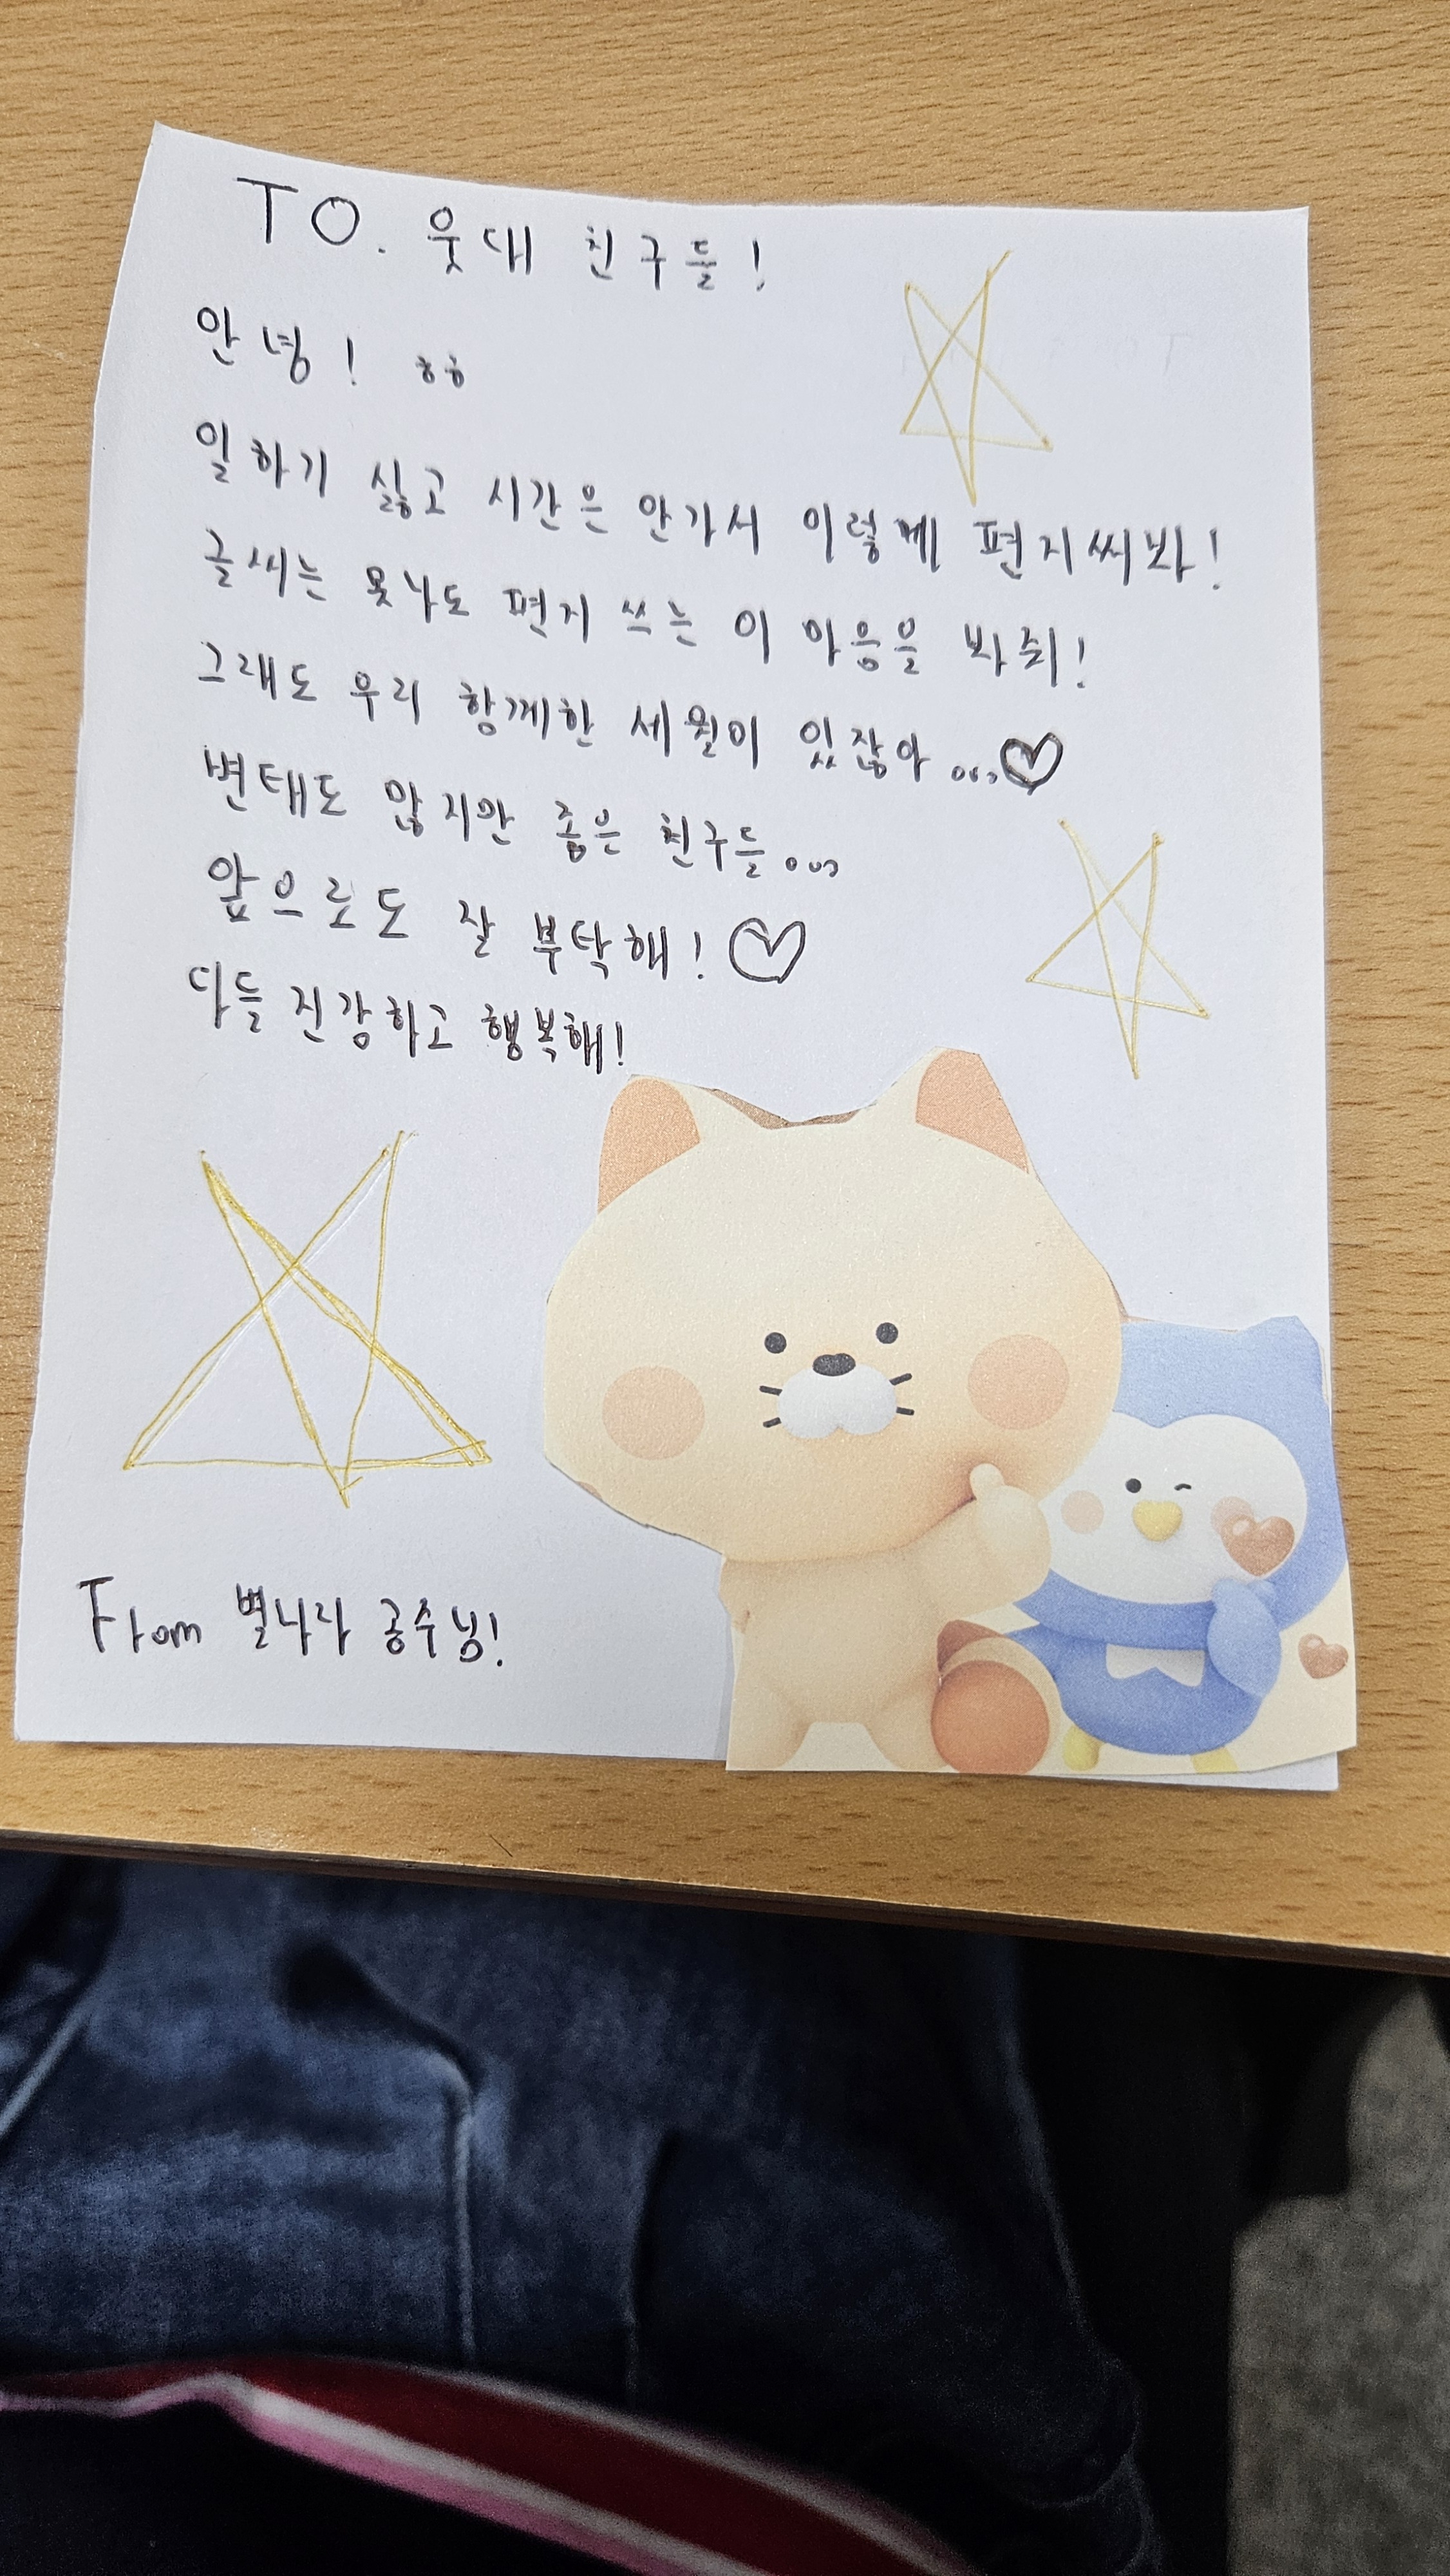 TO. 웃대 친구들!
안녕! ㅎㅎ
일하기 싫고 시간은 안가서 이렇게 편지써봐!
글씨는 못나도 편지 쓰는 이 마음을 봐줘!
그래도 우리 함께한 세월이 있잖아...♡
변태도 많지만 좋은 친구들...
앞으로도 잘 부탁해! ♡
다들 건강하고 행복해!
From 별나라 공수님!